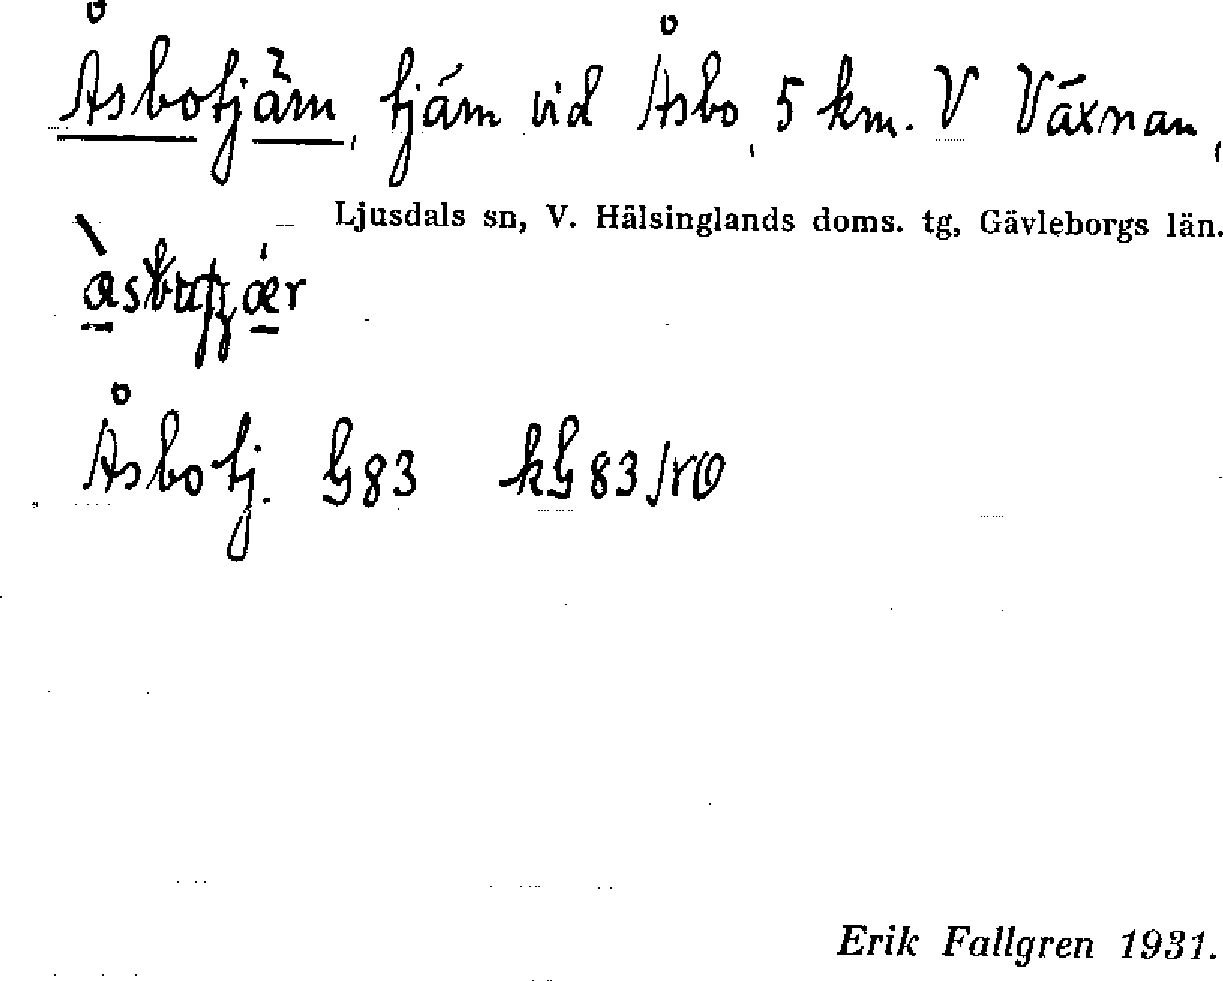 Åsbotjärn, tjärn vid Åsbo, 5 km. V Växnan,
Ljusdals sn, V. Hälsinglands doms. tg, Gävleborgs län.
Åsbotj. G83 kG83/rO
Erik Fallgren 1931.